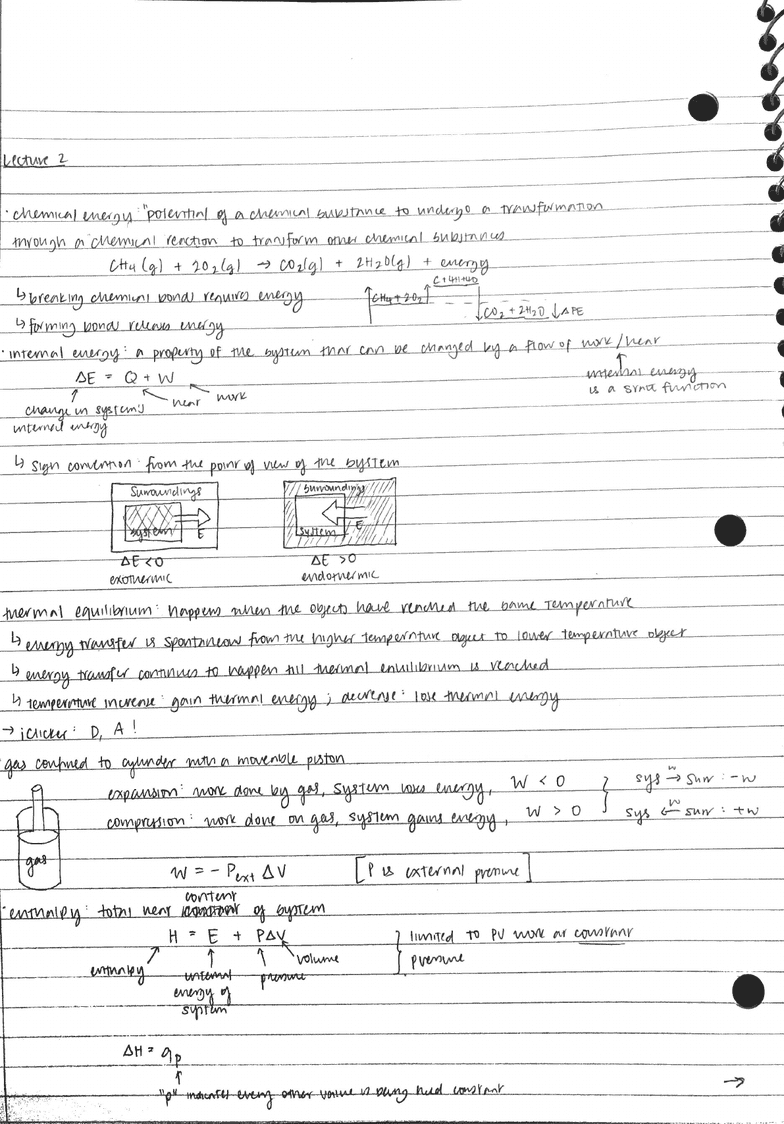 Lecture 2
· chemical energy: "potential of a chemical substance to undergo a transformation
through a chemical reaction to transform other chemical substances
CH4(g) + 2O2(g) → CO2(g) + 2H2O(g) + energy
↳ breaking chemical bond requires energy
CH4 + 2O2
C + 4H + 4O
CO2 + 2H2O ↓ΔPE
↳ forming bond releases energy
· internal energy: a property of the system that can be changed by a flow of work/heat
internal energy
is a state function
ΔE = Q + W
change in system's
internal energy
heat
work
↳ sign convention: from the point of view of the system
Surroundings
system
E
ΔE < 0
exothermic
Surroundings
system
E
ΔE > 0
endothermic
thermal equilibrium: happens when the objects have reached the same temperature
↳ energy transfer is spontaneous from the higher temperature object to lower temperature object
↳ energy transfer continues to happen till thermal equilibrium is reached
↳ temperature increase: gain thermal energy; decrease: lose thermal energy
→ iclicker: D, A!
· gas confined to cylinder with a movable piston
expansion: work done by gas, system loses energy, W < 0
compression: work done on gas, system gains energy, W > 0
sys →w surr: -w
sys ←w surr: +w
gas
W = - Pext ΔV [P is external pressure]
content
· enthalpy: total heat of system
H = E + PΔV
enthalpy
internal
energy of
system
pressure
volume
} limited to PV work at constant
pressure
ΔH = qp
"p" indicates every other value is being held constant
→